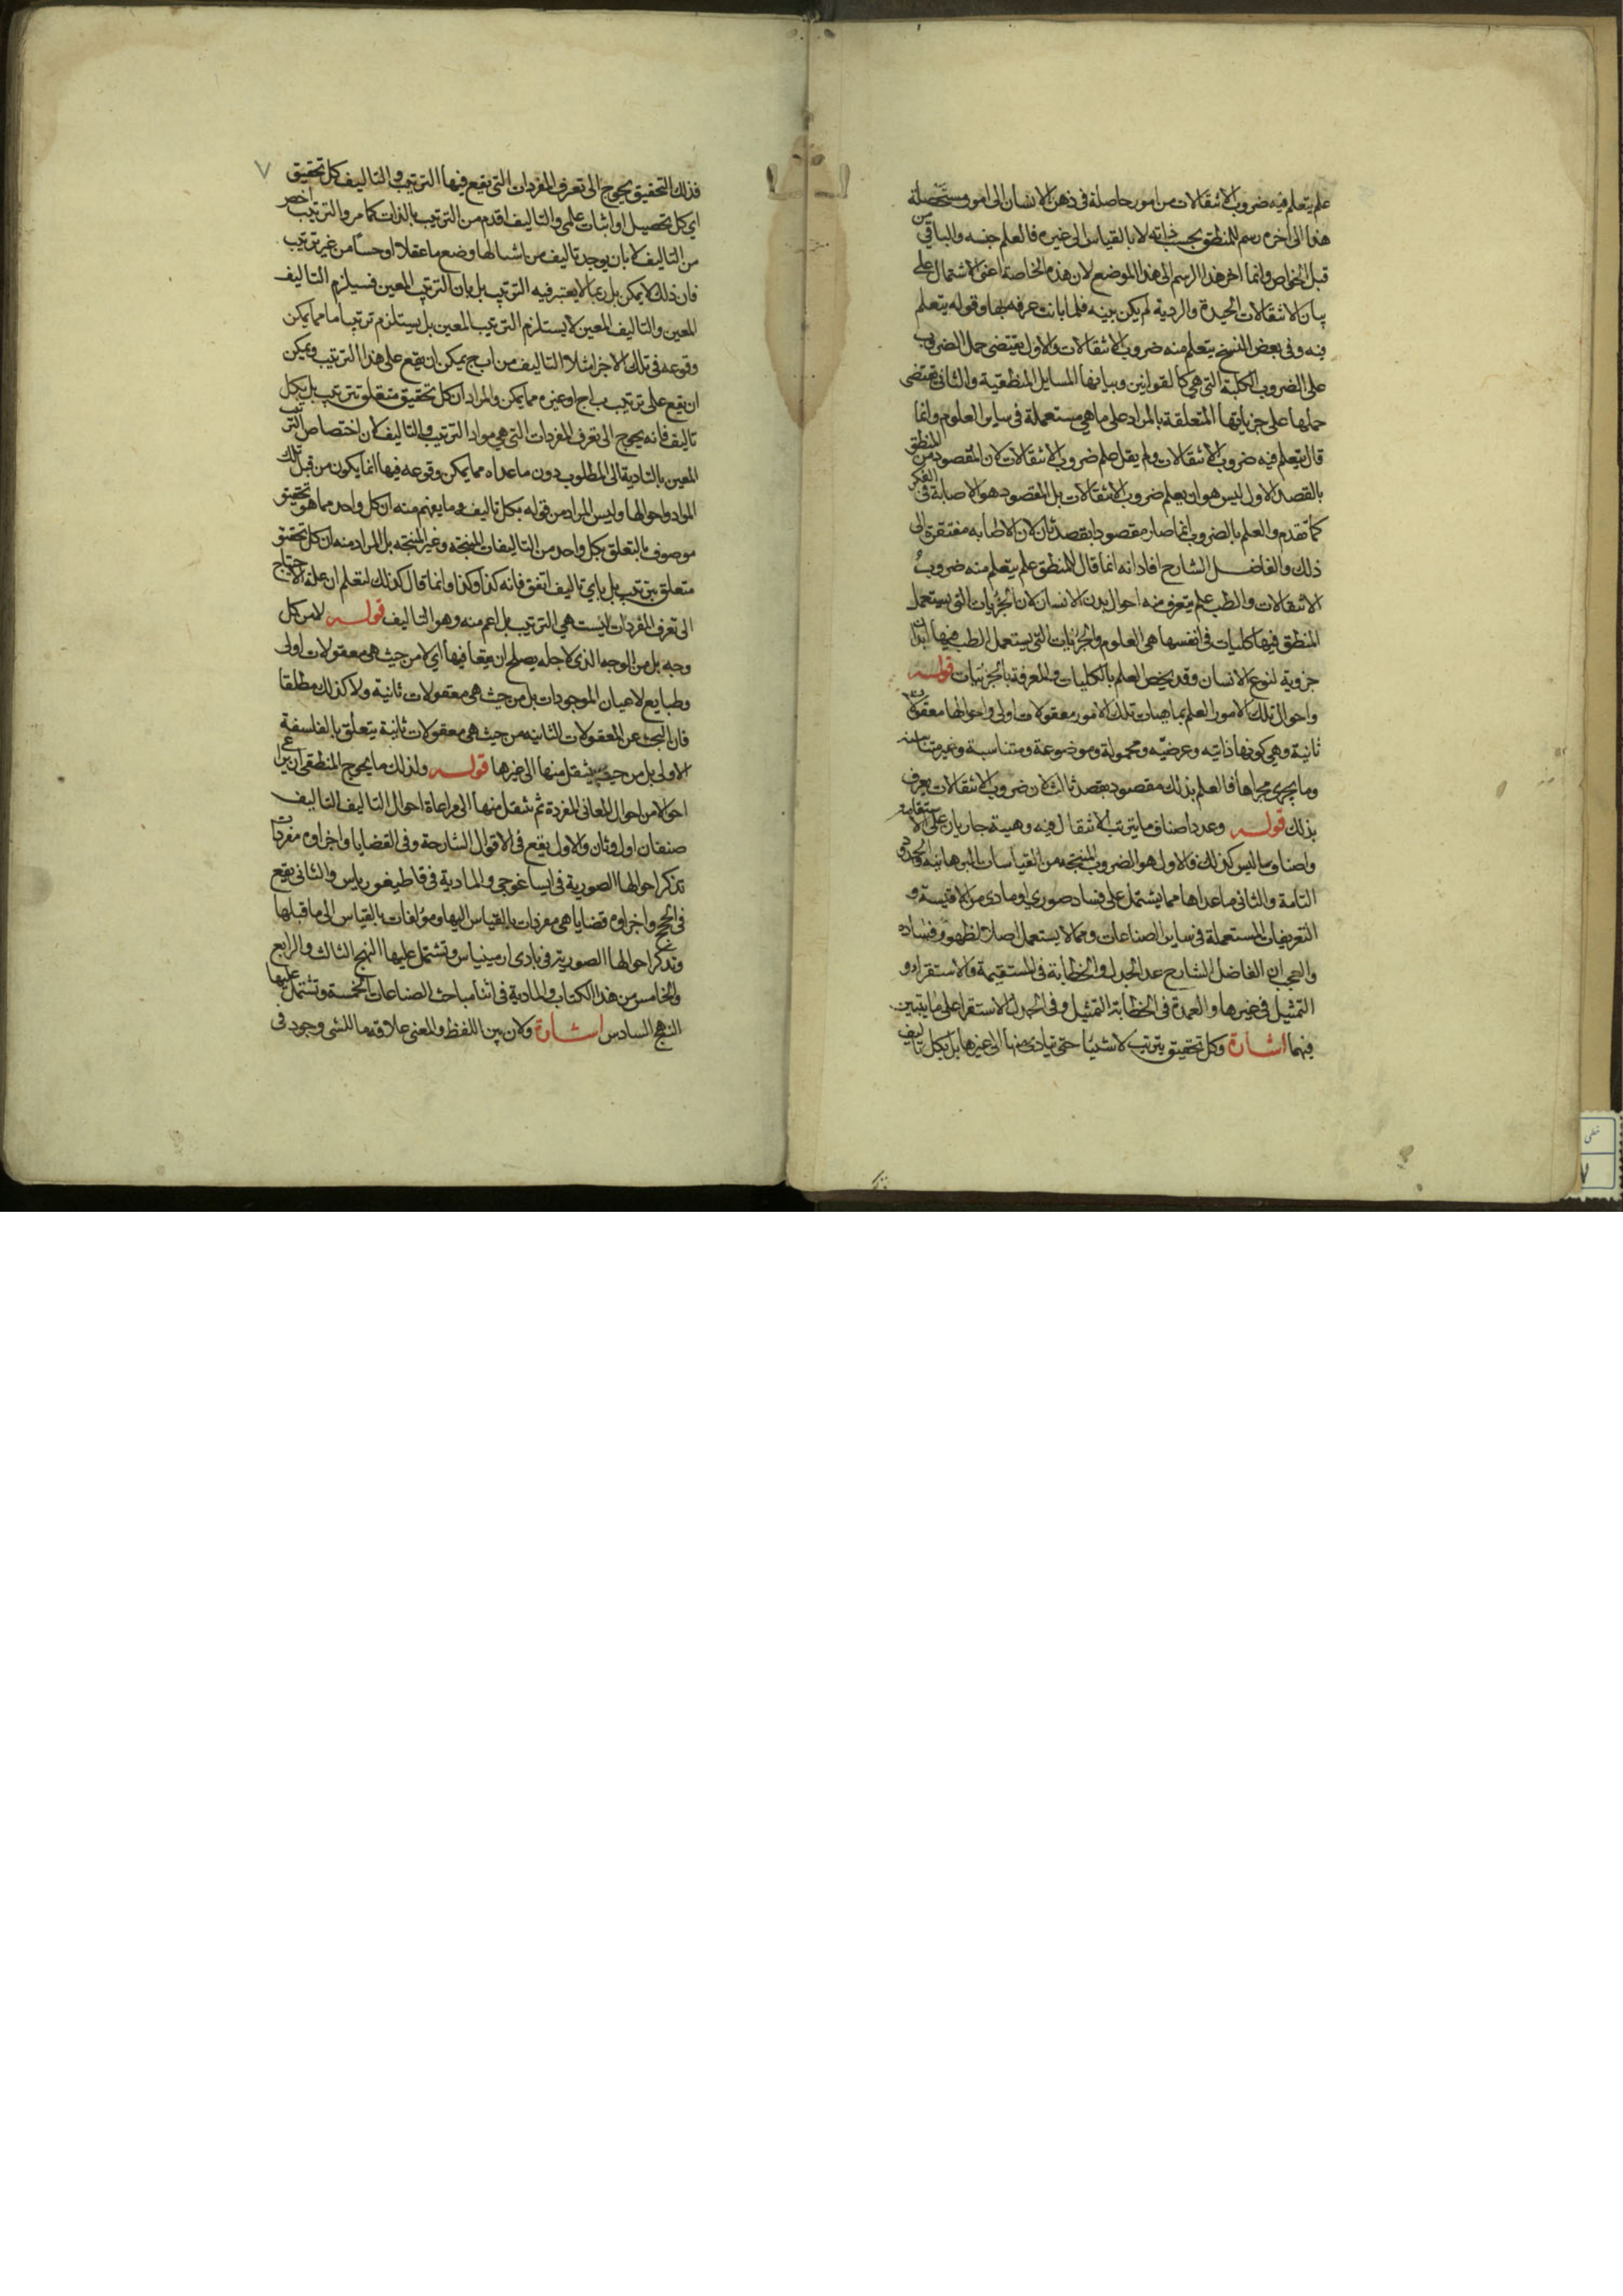 علم يتعلم فيه ضروب الانتقالات من امور حاصلة فى ذهن الانسان الى امور مستحصلة
هذا الى اخره رسم للمنطق بحسب ذاته لا بالقياس الى غيره فالعلم جنسه والباقى من
قبل الخواص وانما اخر هذا الرسم الى هذا الموضع لان هذه الخاصة اعنى الاشتمال على
بيان الانتقالات الجيدة والردية لم يكن بينه فلما بانت عرفه بها وقوله يتعلم
فيه وفى بعض النسخ يتعلم منه ضروب الانتقالات والاول يقتضى حمل الضروب
على الضروب الكلية التى هى كالقوانين وبيانها المسايل المنطقية والثانى يقتضى
حملها على جزياتها المتعلقة بالمواد على ما هى مستعملة فى ساير العلوم وانما
قال يتعلم فيه ضروب الانتقالات ولم يقل علم ضروب الانتقالات لان المقصود من المنطق
بالقصد الاول ليس هو ان يعلم ضروب الانتقالات بل المقصود هو الاصابة فى الفكر
كما تقدم والعلم بالضروب انما صار مقصودا بقصد ثان لان الاصابه مفتقرة الى
ذلك والفاضل الشارح افاد انه انما قال المنطق علم يتعلم منه ضروب
الانتقالات والطب علم يتعرف منه احوال بدن الانسان لان الجزيات التى يستعمل
المنطق فيها كليات فى انفسها هى العلوم والجزيات التى يستعمل الطب فيها ابدان
جزوية لنوع الانسان وقد يخص العلم بالكليات والمعرفة بالجزئيات قوله
واحوال تلك الامور العلم بماهيات تلك الامور معقولات اولى واحوالها معقولات
ثانية وهى كونها ذاتيه وعرضيه ومحمولة وموضوعة ومتناسبة وغير متناسبه
وما يجرى مجراها فالعلم بذلك مقصود بقصد ثالث لان ضروب الانتقالات يعرف
بذلك قوله وعدد اصناف ما يترتب الانتقال فيه وهيئة جاريان على الاستقامه
واصناف ما ليس كذلك فالاول هو الضروب المنتجه من القياسات البرهانيه والحدود
التامة والثانى ماعداها مما يشتمل على فساد صورى او مادى من الاقيسة و
التعريفات المستعملة فى ساير الصناعات ومما لا يستعمل اصلا لظهور فساده
والعجب ان الفاضل الشارح عد الجدل والخطابة فى المستقيمة والاستقراء و
التمثيل فى غيرها والعمدة فى الخطابة التمثيل وفى الجدل الاستقرا على ما يتبين
فيهما اشارة وكل تحقيق يترتب الاشيا حتى يتادى منها الى غيرها بل بكل تاليف
٧
فذلك التحقيق يحوج الى تعرف المفردات التى يقع فيها الترتيب والتاليف كل تحقيق
اى كل تحصيل او اثبات علمى والتاليف اقدم من الترتيب بالذات كما مر والترتيب اخص
من التاليف لا بان يوجد تاليف من اشيا لها وضع ما عقلا او حسا من غير ترتيب
فان ذلك لا يمكن بل ربما لا يعتبر فيه الترتيب بل بان الترتيب المعين فسيلزم التاليف
المعين والتاليف المعين لا يستلزم الترتيب المعين بل يستلزم ترتيبا ما مما يمكن
وقوعه فى تلك الاجزا مثلا التاليف من ا ب ج يمكن ان يقع على هذا الترتيب ويمكن
ان يقع على ترتيب ب ا ج او غيره مما يمكن والمراد ان كل تحقيق متعلق بترتيب بل بكل
تاليف فانه يحوج الى تعرف المفردات التى هى مواد الترتيب والتاليف لان اختصاص الترتيب
المعين بالتادية الى المطلوب دون ماعداه مما يمكن وقوعه فيها انما يكون من قبل تلك
المواد واحوالها وليس المراد من قوله بكل تاليف وما يفهم منه ان كل واحد مما هو تحقيق
موصوف بالتعلق بكل واحد من التاليفات المنتجة وغير المنتجه بل المراد منه ان كل تحقيق
متعلق بترتيب بل باى تاليف اتفق فانه كذا وكذا وانما قال كذلك لتعلم ان علة الاحتياج
الى تعرف المفردات ليست هى الترتيب بل اعم منه وهو التاليف قوله لا من كل
وجه بل من الوجه الذى لاجله يصلح ان يقعا فيها اى لا من حيث هى معقولات اولى
وطبايع لاعيان الموجودات بل من حيث هى معقولات ثانية ولا كذلك مطلقا
فان البحث عن المعقولات الثانيه من حيث هى معقولات ثانية يتعلق بالفلسفة
الاولى بل من حيث ينتقل منها الى غيرها قوله ولذلك ما يحوج المنطقى ان يراعى
احوالا من احوال المعانى المفردة ثم ينتقل منها الى مراعاة احوال التاليف التاليف
صنفان اول وثان والاول يقع فى الاقوال الشارحة وفى القضايا واجزاوه مفردات
تذكر احوالها الصورية فى ايساغوجى والمادية فى قاطيغورياس والثانى يقع
فى الحجج واجزاوه قضايا هى مفردات بالقياس اليها ومؤلفات بالقياس الى ما قبلها
وتذكر احوالها الصورية فى بارى ارمينياس وتشتمل عليها النهج الثالث والرابع
والخامس من هذا الكتاب والمادية فى اثنا مباحث الصناعات الخمسة وتشتمل عليها
النهج السادس اشارة ولان بين اللفظ والمعنى علاقه ما للشى وجود فى